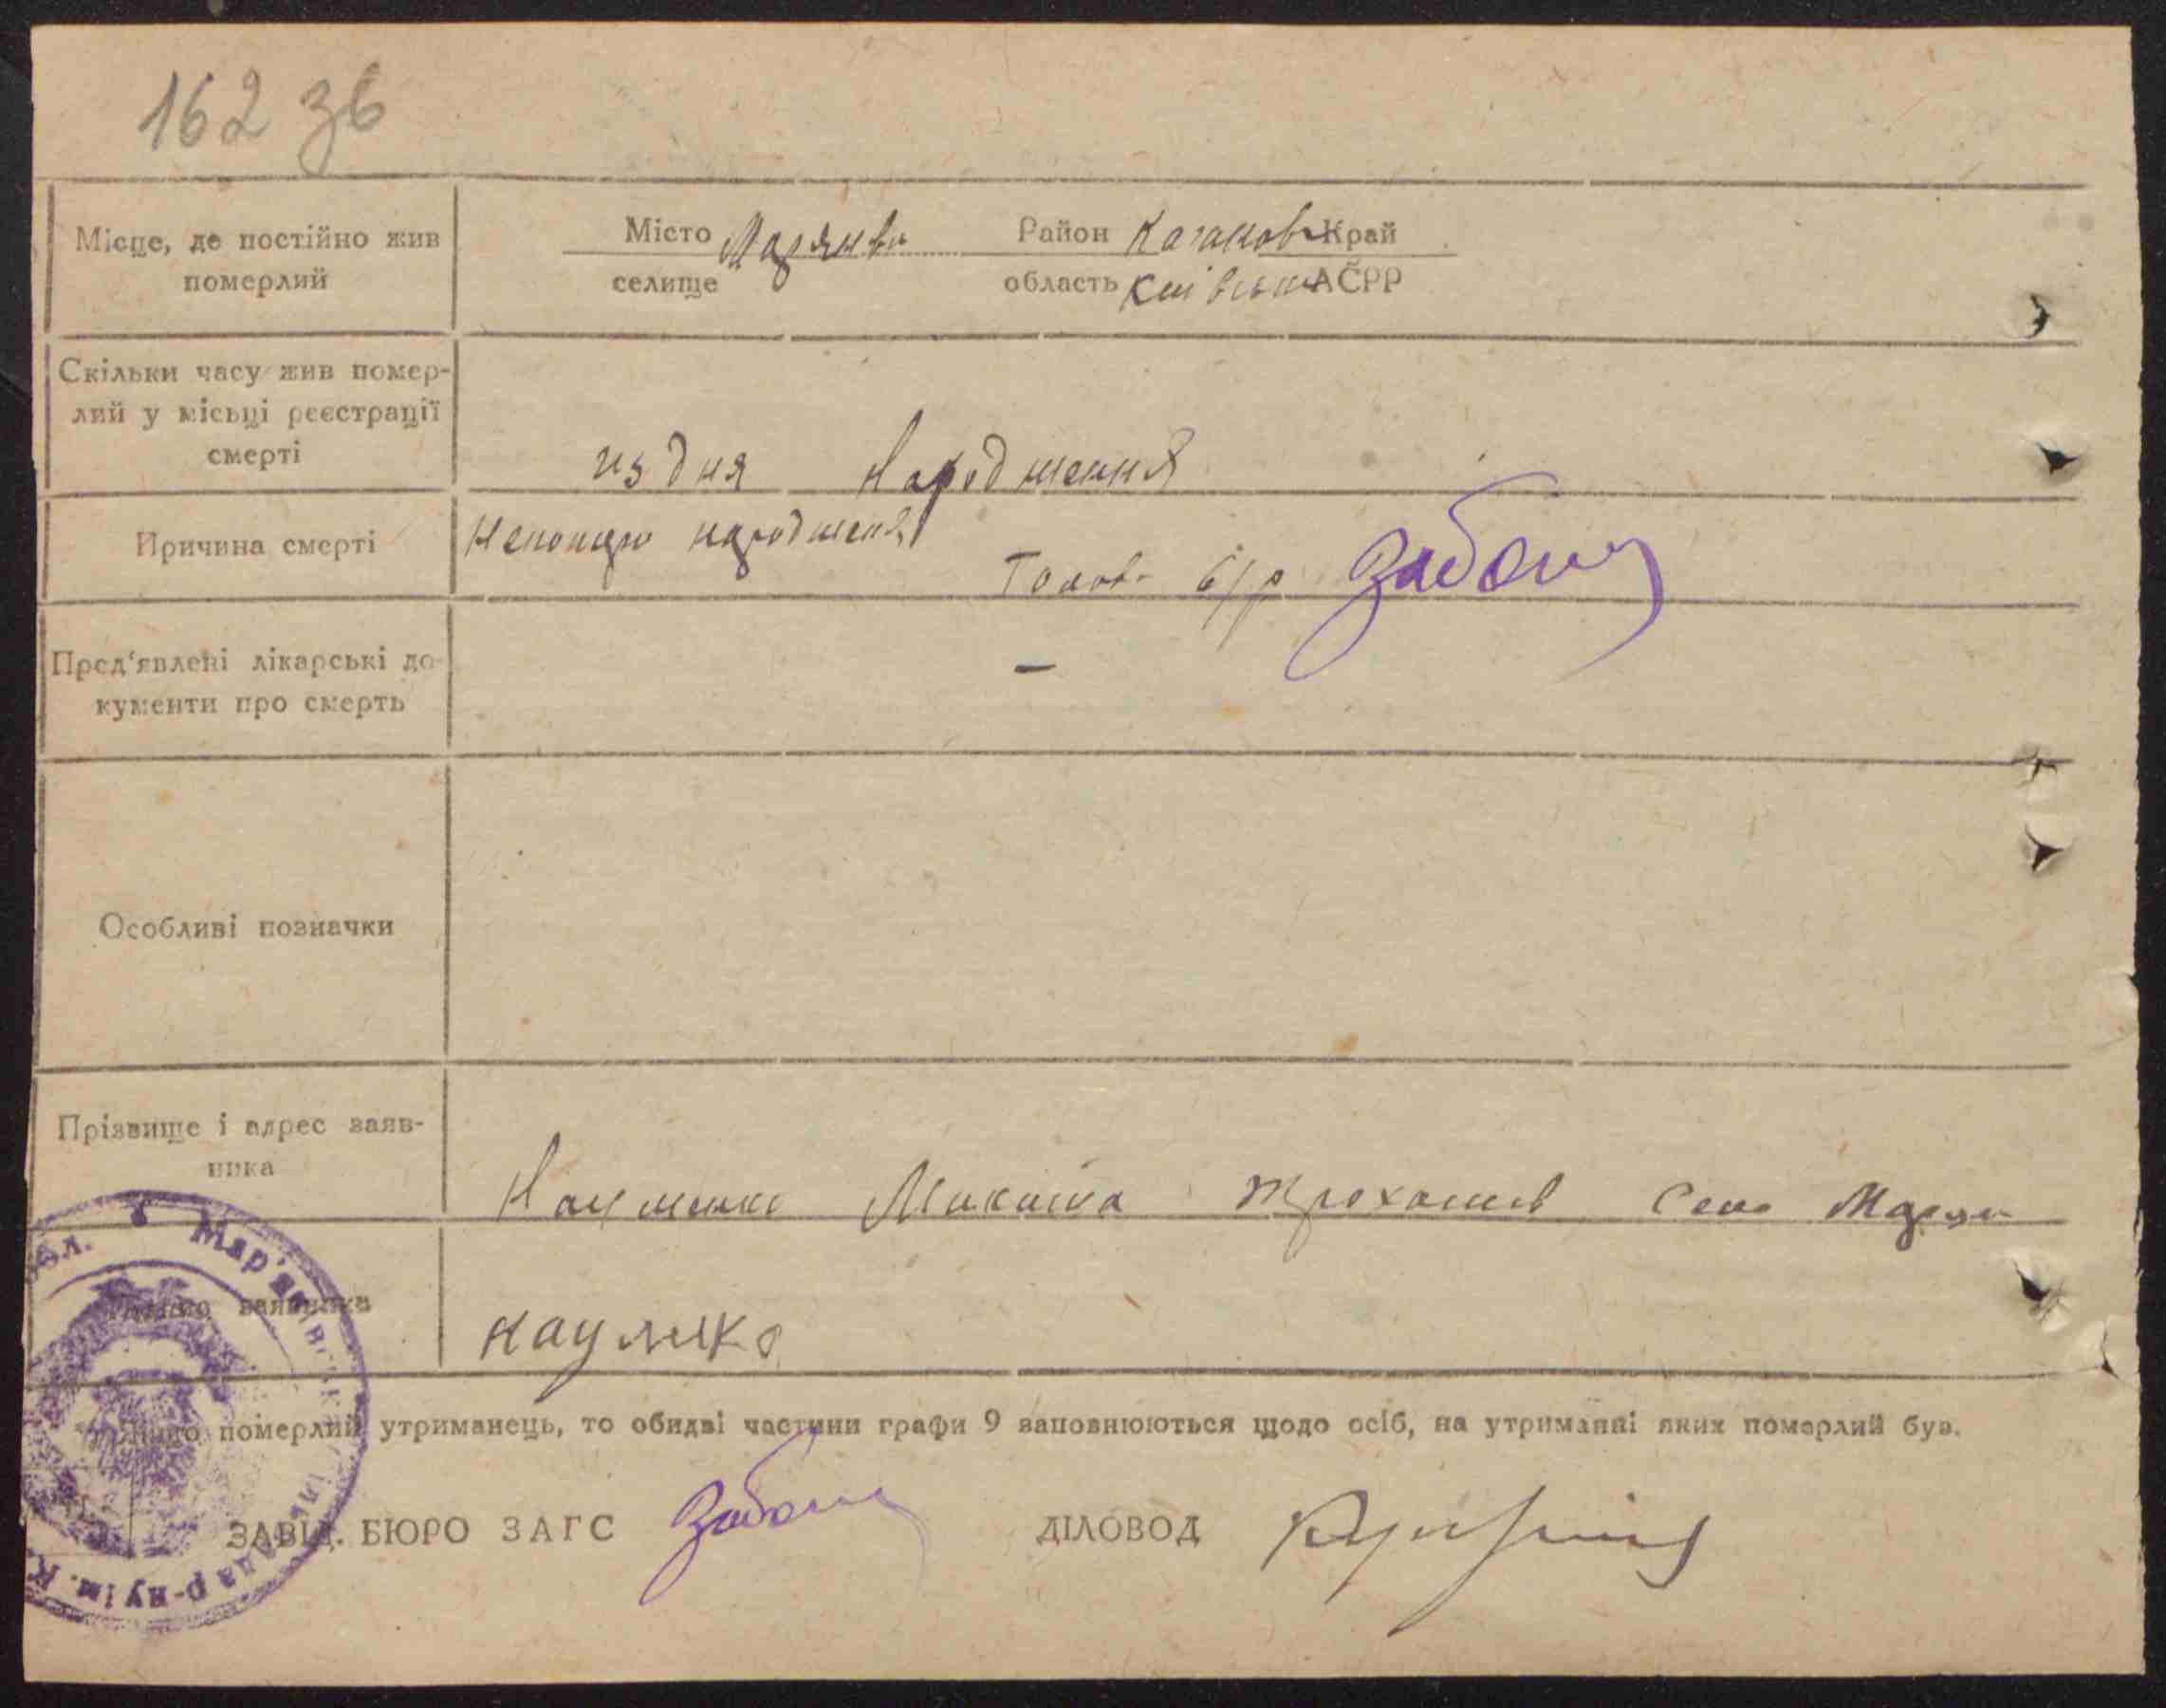 162 зв
Місце, де постійно жив
померлий
Місто Марянвк Район Каганов Край
селище область Київська АСРР
Скільки часу жив помер-
лий у місьці реєстрації
смерті
из дня народшення
Причина смерті
народшення
Голова с/р
Пред'явлені лікарські до-
кументи про смерть
—
Особливі позначки
Прізвище і адрес заяв-
ника
Науменко Микита Трохомов Село Маря
заявника
Науменко
померлий утриманець, то обидві частини графи 9 заповнюються щодо осіб, на утриманні яких померлий був.
ЗАВІД. БЮРО ЗАГС ДІЛОВОД